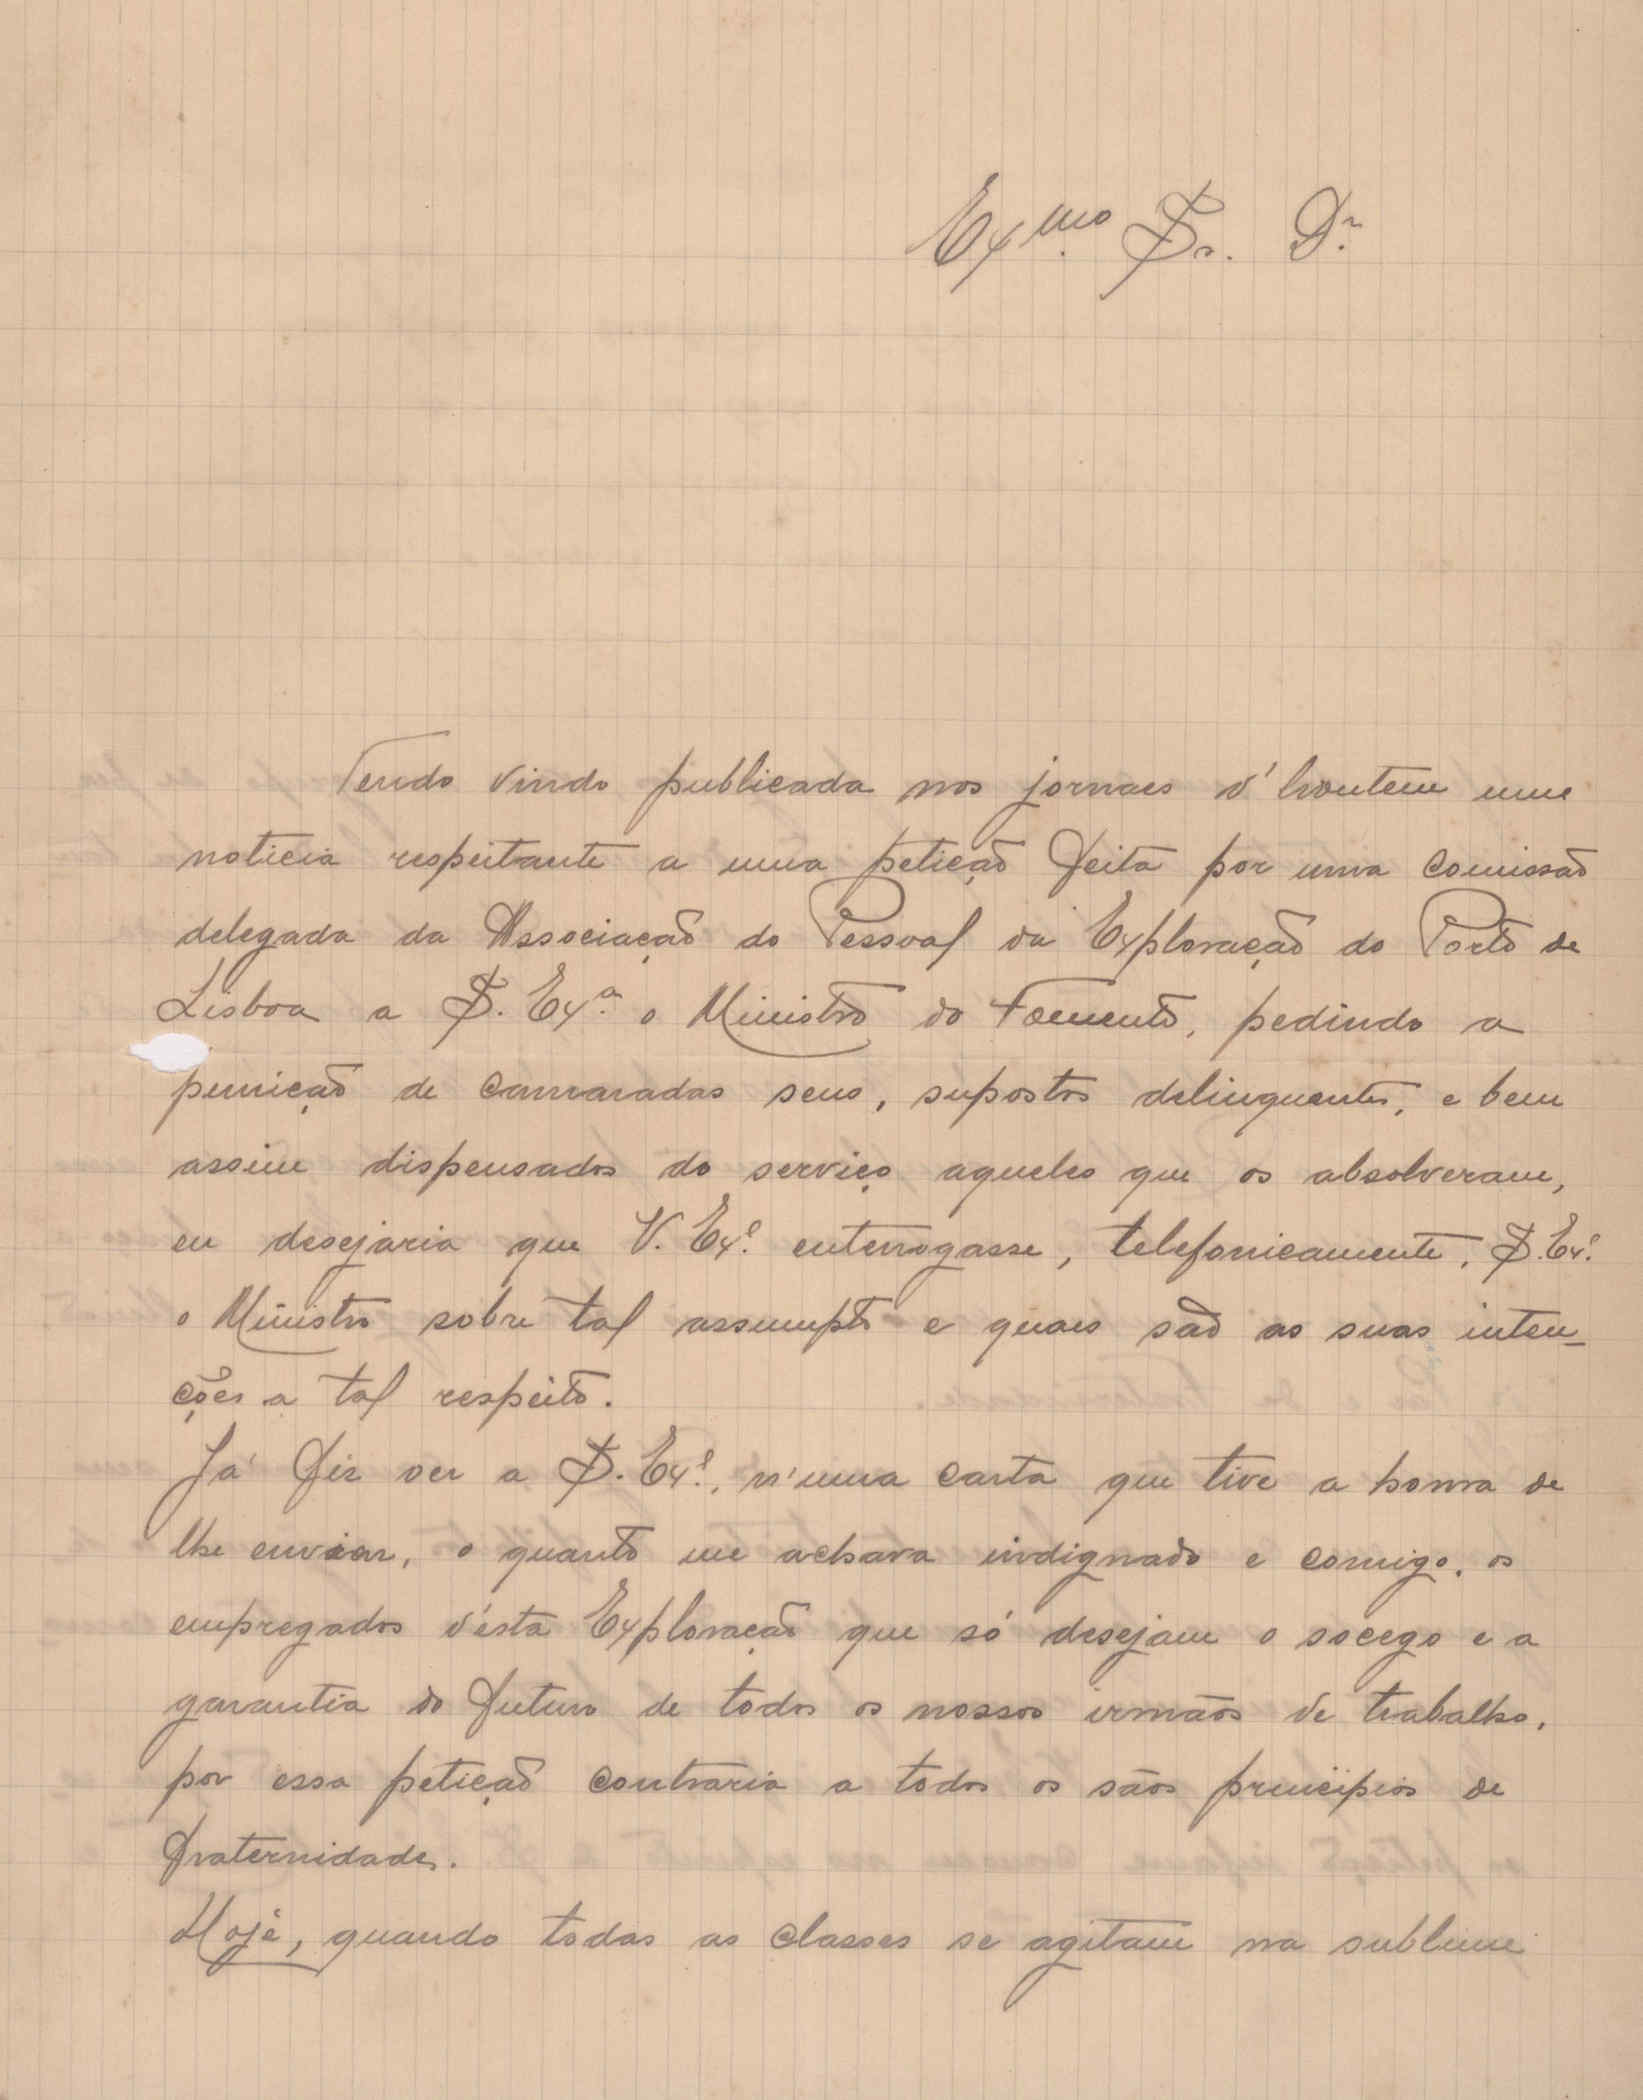 Exmo. Sr. Dr.
Tendo vindo publicada nos jornaes d'hontem uma
noticia respeitante a uma petição feita por uma comissão
delegada da Associação do Pessoal da Exploração do Porto de
Lisboa a S. Exa. o Ministro do Fomento, pedindo a
punição de camaradas seus, supostos delinquentes, e bem
assim dispensados do serviço aqueles que os absolveram,
eu desejaria que V. Exa. enterrogasse, telefonicamente, S. Exa.
o Ministro sobre tal assumpto e quaes são as suas inten-
ções a tal respeito.
Já fiz ver a S. Exa., n'uma carta que tive a honra de
lhe enviar, o quanto me achava indignado e comigo, os
empregados d'esta Exploração que só desejam o socego e a
garantia do futuro de todos os nossos irmãos de trabalho,
por essa petição contraria a todos os sãos principios de
fraternidade.
Hoje, quando todas as classes se agitam na sublime